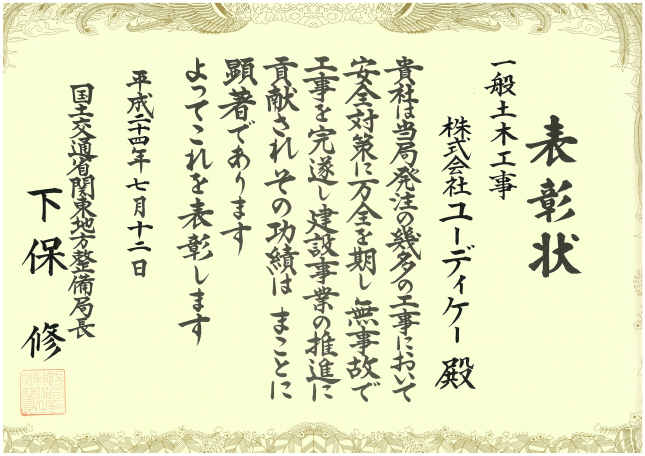 表彰状
一般土木工事
株式会社ユーディケー 殿
貴社は当局発注の幾多の工事において
安全対策に万全を期し 無事故で
工事を完遂し建設事業の推進に
貢献されその功績は まことに
顕著であります
よってこれを表彰します
平成二十四年 七月十二日
国土交通省関東地方整備局長
下保 修